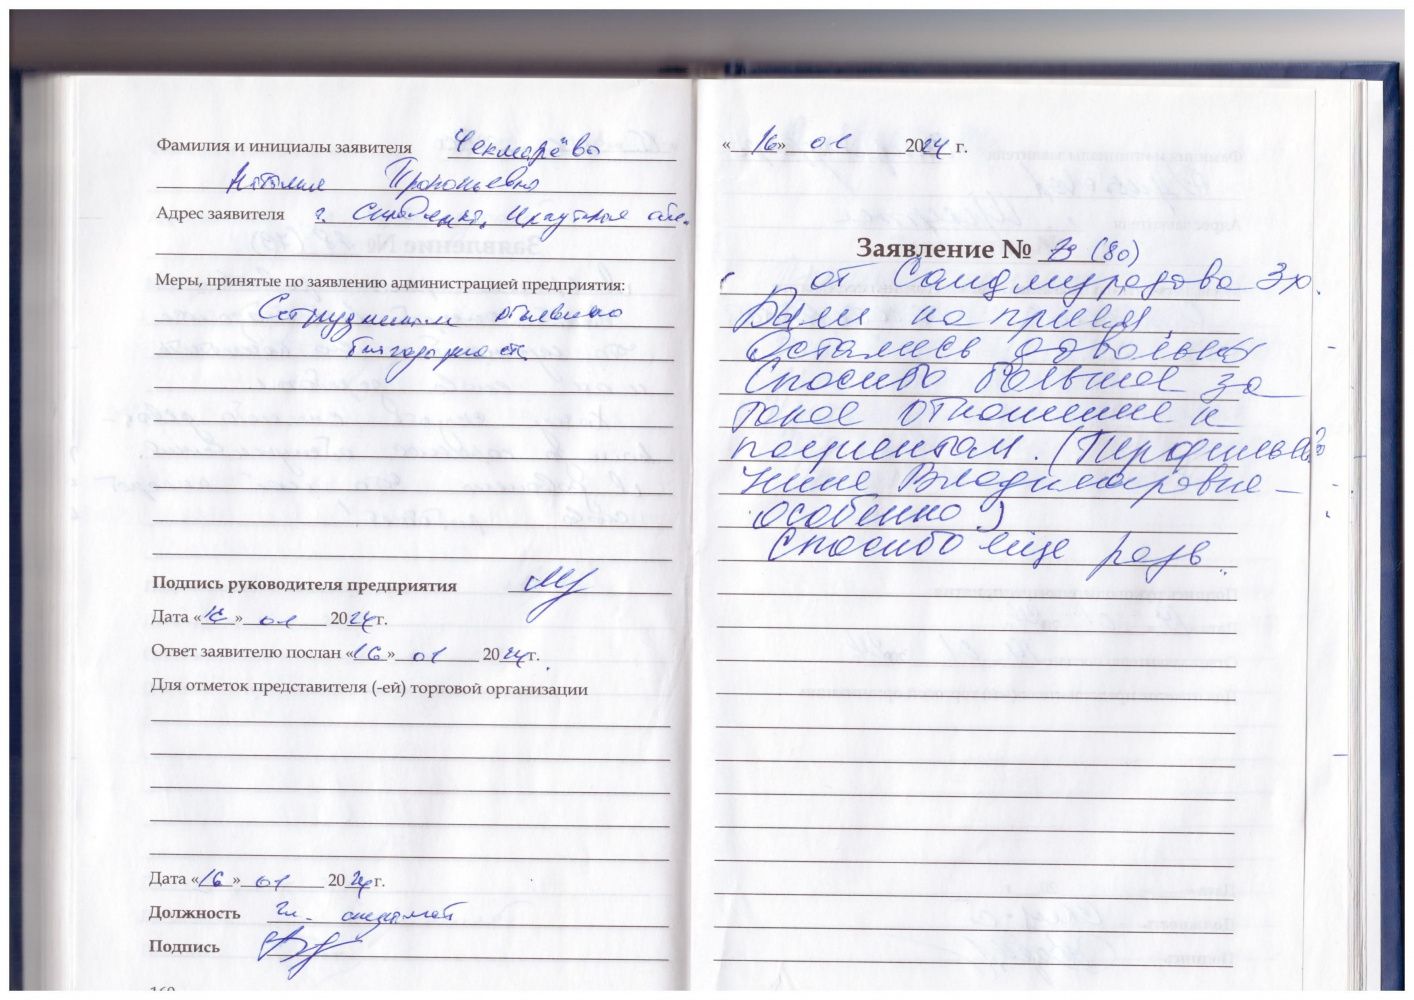 Фамилия и инициалы заявителя Чекмарёвы
Наталия Прокопьевна
Адрес заявителя г.
Меры, принятые по заявлению администрацией предприятия:
Сотрудникам объявлена
благодарность
Подпись руководителя предприятия
Дата «16» 01 2024 г.
Ответ заявителю послан «16» 01 2024 г.
Для отметок представителя (-ей) торговой организации
Дата «16» 01 2024 г.
Должность гл. специалист
Подпись
«16» 01 2024 г.
Заявление № 79 (80)
от Саидмурадова Зю.
Были на приеме.
Остались довольны
Спасибо большое за
такое отношение к
пациентам. (
Нине Владимировне –
особенно)
Спасибо еще раз